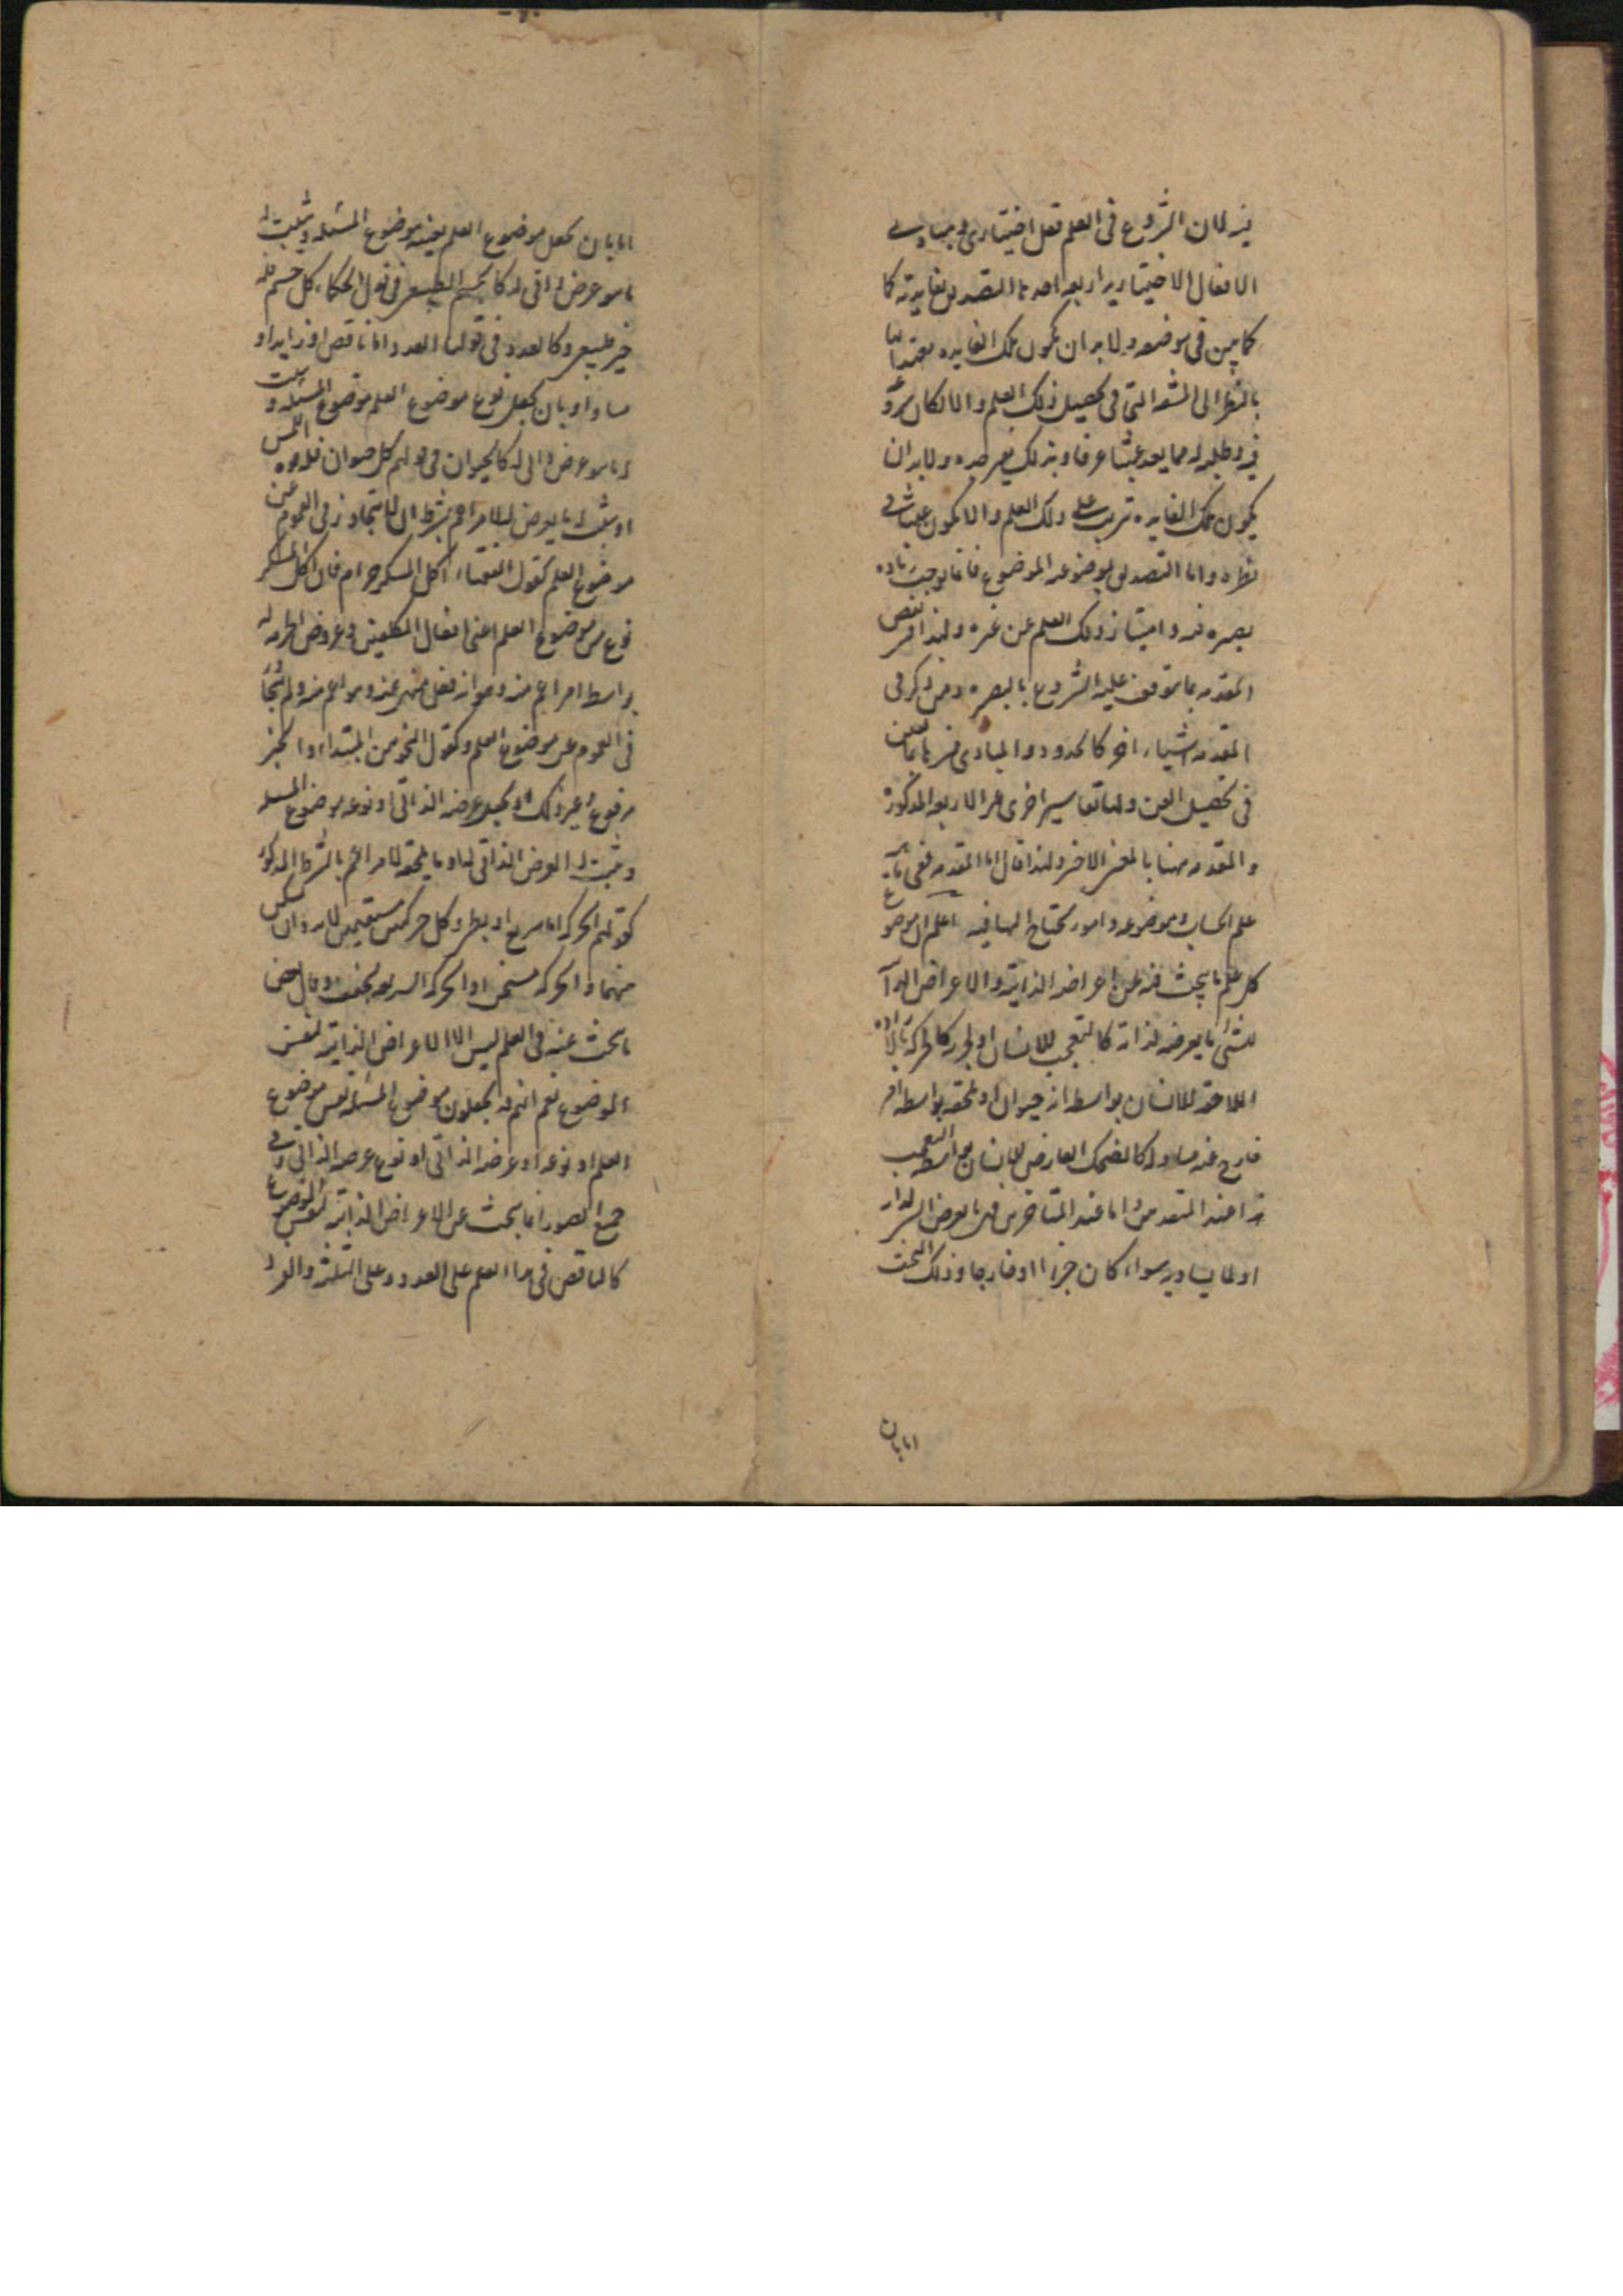 فيه لان الشروع فى العلم فعل اختيارى ومبادى
الافعال الاختياريه اربعه احدها التصديق بغايته كما
كما يبين فى موضعه ولا بد ان يكون تلك الفايده معتدا بها
بالنظر الى المشقة التى فى تحصيل ذلك العلم والا لكان شروعه
فيه وطلبه له مما يعد عبثا عرفا وبذلك يفتر جده ولا بد ان
يكون تلك الفايده تترتب على ذلك العلم والا يكون عبثا فى
نظره واما التصديق بموضوعيه الموضوع فانما يوجب زياده
بصيره فيه وامتياز ذلك العلم عن غيره ولهذا فسر بعض
المقدمه بما يتوقف عليه الشروع بالبصيره ومن ذكر فى
المقدمه اشياء اخر كالحدود والمبادى فسرها بما يعين
فى تحصيل الفن ولها تفاسير اخرى غير الاربعه المذكوره
والمقدمه ههنا بالمعنى الاخير ولذا قال اما المقدمه ففى
علم الحساب وموضوعه وامور يحتاج اليها فيه اعلم ان موضوع
كل علم ما يبحث فيه عن اعراضه الذاتيه والاعراض الذا
للشئ ما يعرضه لذاته كالتعجب للانسان او لجزئه كالحركة بالاراده
اللاحقه للانسان بواسطه انه حيوان او تلحقه بواسطه امر
خارج عنه مساو له كالضحك العارض للانسان بواسطه التعجب
هذا عند المتقدمين واما عند المتاخرين فهى ما يعرض الشئ لذاته
او لما يساويه سواء كان جزءا او خارجا وذلك البحث
امابان
امابان يجعل موضوع العلم بعينه موضوع المسئله ويثبت له
ما هو عرض ذاتى له كالجسم الطبيعى فى قول الحكماء كل جسم فله
حيز طبيعى وكالعدد فى قولنا العدد اما ناقص او زايد او
مساو او بان يجعل نوع موضوع العلم موضوع المسئله ويثبت
له ما هو عرض ذاتى له كالحيوان فى قولهم كل حيوان فله قوه اللمس
او يثبت له ما يعرض له لامر اعم بشرط ان لا يتجاوز فى العموم عن
موضوع العلم كقول الفقهاء اكل المسكر حرام فان اكل المسكر
نوع من موضوع العلم اعنى افعال المكلفين وعروض الحرمه له
بواسطه امر اعم منه وهو انه فعل منهى عنه وهو اعم منه ولم يتجاوز
فى العموم عن موضوع العلم وكقول النحويين المبتداء والخبر
مرفوع وغير ذلك او يجعل عرضه الذاتى او نوعه موضوع المسئله
ويثبت له العرض الذاتى له او ما يلحقه لامر اعم بالشرط المذكور
كقولهم الحركه اما سريع او بطئ وكل حركتين مستقيمتين لابد وان
منهما والحركه مسخن او الحركه السريعه يجفف وقال بعض
ما يبحث عنه فى العلم ليس الا الاعراض الذاتيه لنفس
الموضوع نعم انهم قد يجعلون موضوع المسئله نفس موضوع
العلم او نوعه او عرضه الذاتى او نوع عرضه الذاتى وفى
جميع الصور انما يبحث عن الاعراض الذاتيه لنفس الموضوع
كالناقص فى هذا العلم على العدد وعلى الثلثه والفرد